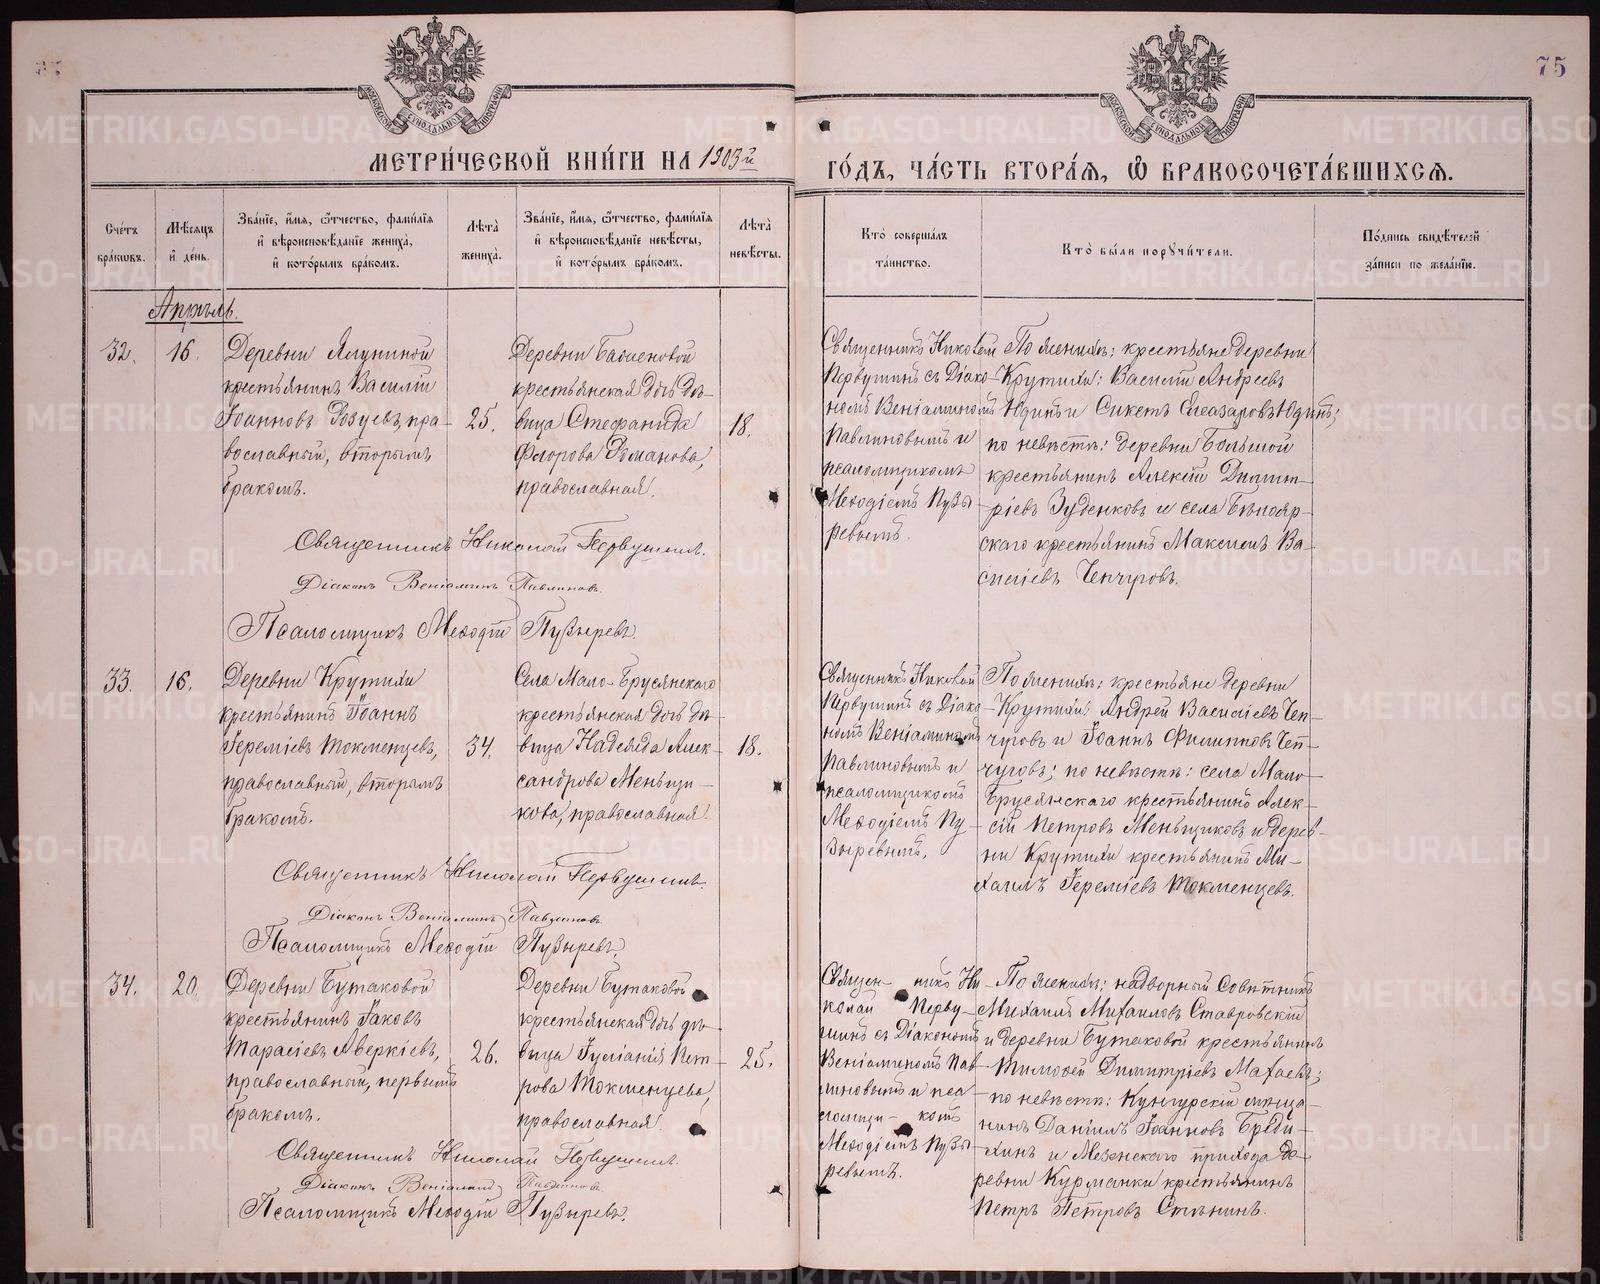 75
МОСКОВСКОЙ СѴНОДАЛЬНОЙ ТИПОГРАФІИ
МОСКОВСКОЙ СѴНОДАЛЬНОЙ ТИПОГРАФІИ
МЕТРИ́ЧЕСКОЙ КНИ́ГИ НА 1903й
ГО́ДЪ, ЧА́СТЬ ВТОРА́Я, Ѡ БРАКОСОЧЕТА́ВШИХСЯ.
Сче́тъ бра́кѡвъ.
Мѣ́сяцъ и́ де́нь.
Зва́нїе, и́мя, ѻ́тчество, фами́лїя и́ вѣроисповѣ́данїе жениха̀, и́ кото́рымъ бра́комъ.
Лѣта̀ жениха̀.
Зва́нїе, и́мя, ѻ́тчество, фами́лїя и́ вѣроисповѣ́данїе невѣ́сты, и́ кото́рымъ бра́комъ.
Лѣта̀ невѣ́сты.
Кто̀ соверша́лъ та́инство.
Кто̀ бы́ли порꙋчи́тели.
По́дпись свидѣ́телей за́писи по жела́нїю.
Апрѣль.
32.
16.
Деревни Ялуниной
крестьянинъ Василій
Іоанновъ Розуевъ, пра-
вославный, вторымъ
бракомъ.
25.
Деревни
крестьянская дочь дѣ-
вица Стефанида
Флорова Романова,
православная.
18.
Священникъ Николай
Первушинъ съ Діако-
номъ Веніаминомъ
Павлиновымъ и
псаломщикомъ
Меѳодіемъ Пузы-
ревымъ.
По женихѣ: крестьяне деревни
Крутихи: Василій Андреевъ
Юдинъ и Сикетъ Елеазаровъ Юдинъ;
по невѣстѣ: деревни Большой
крестьянинъ Алексій Димит-
ріевъ Зуденковъ и села Бѣлояр-
скаго крестьянинъ Максимъ Ва-
силіевъ Чепчуговъ.
Священникъ Николай Первушинъ.
Діаконъ Веніаминъ Павлиновъ.
Псаломщикъ Меѳодій Пузыревъ.
33.
16.
Деревни Крутихи
крестьянинъ Іоаннъ
Іереміевъ Токменцевъ,
православный, вторымъ
бракомъ.
34.
Села Мало-Брусянскаго
крестьянская дочь дѣ-
вица Надежда Алек-
сандрова Меньщи-
кова, православная.
18.
Священникъ Николай
Первушинъ съ Діако-
номъ Веніаминомъ
Павлиновымъ и
псаломщикомъ
Меѳодіемъ Пу-
зыревымъ.
По женихѣ: крестьяне деревни
Крутихи Андрей Василіевъ Чеп-
чуговъ и Іоаннъ Филипповъ Чеп-
чуговъ; по невѣстѣ: села Мало-
Брусянскаго крестьянинъ Алек-
сій Петровъ Меньщиковъ и дерев-
ни Крутихи крестьянинъ Ми-
хаилъ Іереміевъ Токменцевъ.
Священникъ Николай Первушинъ.
Діаконъ Веніаминъ Павлиновъ.
Псаломщикъ Меѳодій Пузыревъ.
34.
20.
Деревни Бутаковой
крестьянинъ Іаковъ
Тарасіевъ Аверкіевъ,
православный, первымъ
бракомъ.
26.
Деревни Бутаковой
крестьянская дочь дѣ-
вица Іуліанія Пет-
рова Токменцева,
православная.
25.
Священникъ Ни-
колай Перву-
шинъ съ Діакономъ
Веніаминомъ Пав-
линовымъ и пса-
ломщи-комъ
Меѳодіемъ Пузы-
ревымъ.
По женихѣ: надворный Совѣтникъ
Михаилъ Михаиловъ Ставровскій
и деревни Бутаковой крестьянинъ
Тимоѳей Димитріевъ Махаевъ;
по невѣстѣ: Кунгурскій мѣща-
нинъ Даніилъ Іоанновъ Бреди-
хинъ и Мезенскаго прихода де-
ревни Курманки крестьянинъ
Петръ Петровъ Стѣнинъ.
Священникъ Николай Первушинъ.
Діаконъ Веніаминъ Павлиновъ.
Псаломщикъ Меѳодій Пузыревъ.
METRIKI.GASO-URAL.RU